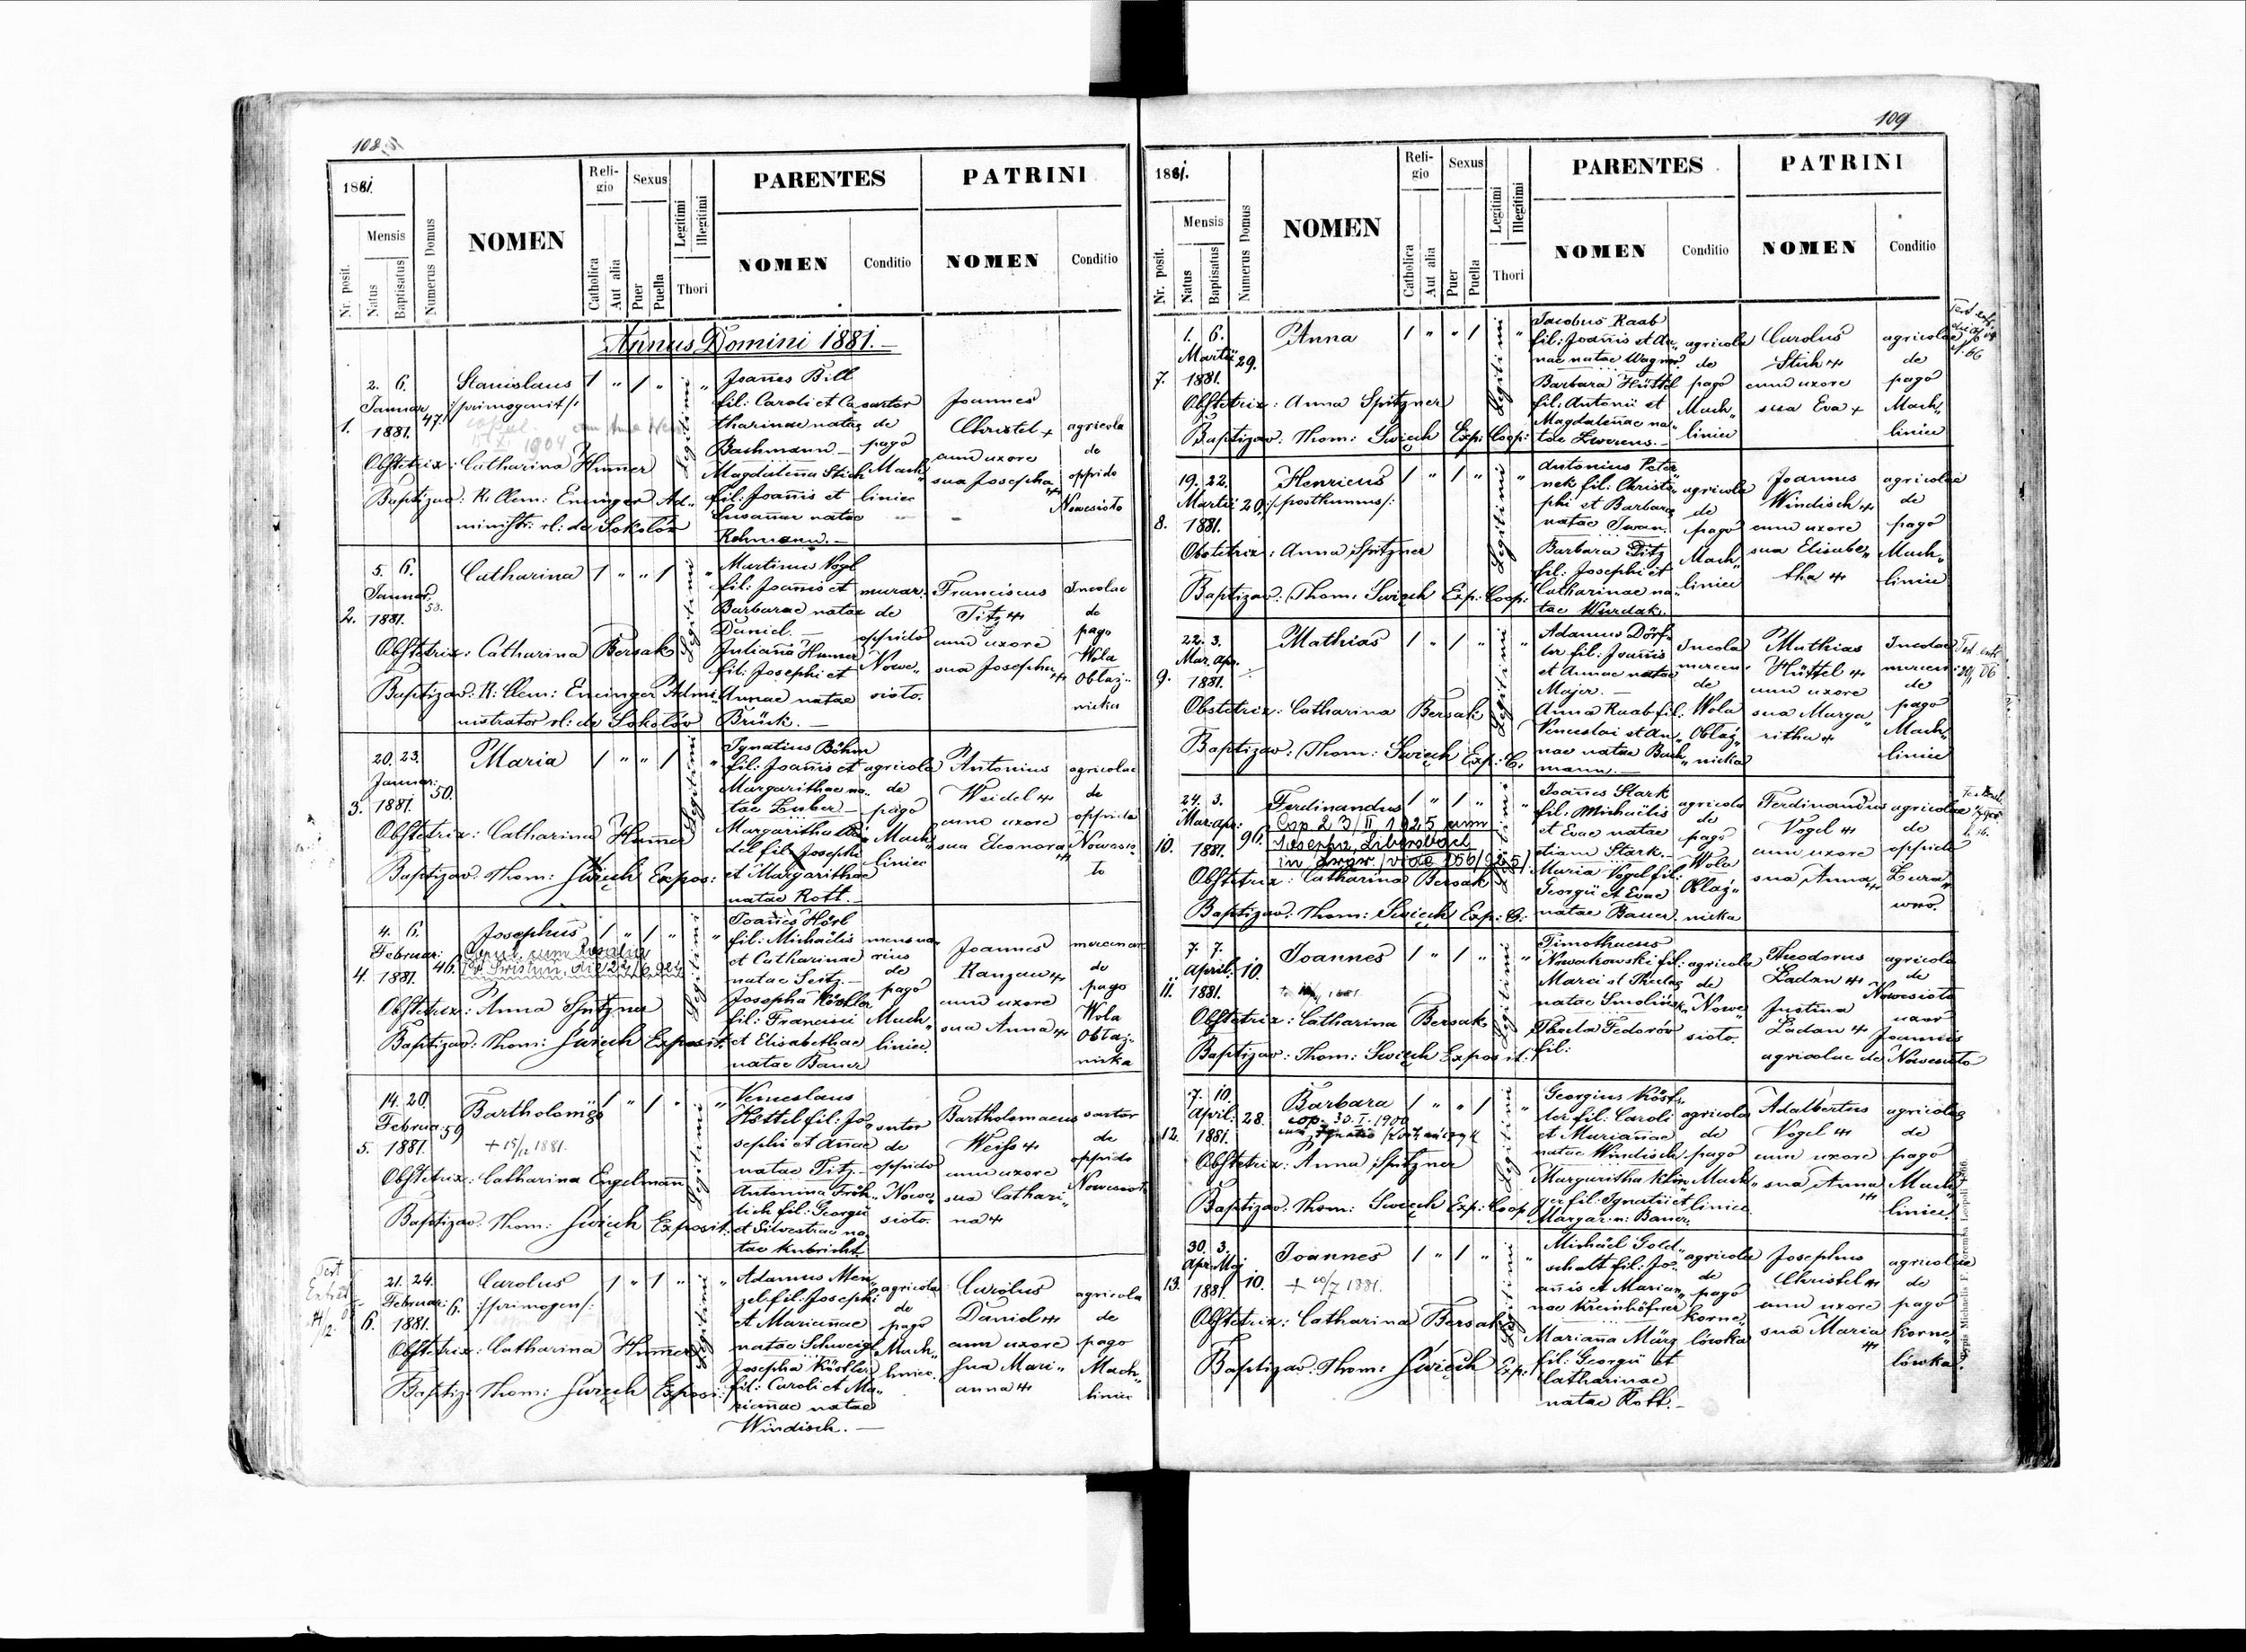 108
1881.
Nr. posit.
Mensis
Natus
Baptisatus
Numerus Domus
NOMEN
Religio
Catholica
Aut alia
Sexus
Puer
Puella
Legitimi
Illegitimi
Thori
PARENTES
NOMEN
Conditio
PATRINI
NOMEN
Conditio
Annus Domini 1881.
1.
2. 6.
Januar
1881.
47.
Stanislaus
/:primogenit:/
1904
Obstetrix: Catharina Hum̄er
Baptizav: R. Clem: Eninger Ad„
ministr: rl: de Sokolów
Legitimi
Joan̄es Bill
fil: Caroli et Ca
tharinae natae
Bachmann
Magdalen̄a Stich
fil: Joan̄is et
Susan̄ae natae
Rehmann.
sartor
de
pago
Mach„
liniec
Joannes
Christel +
cum uxore
sua Josepha
agricola
de
oppido
Nowesioto
2.
5. 6.
Januar.
1881.
58.
Catharina
Obstetrix: Catharina Bersak
Baptizav: R. Clem: Eninger Admi„
nistrator rl: de Sokolów
Legitimi
Martinus Vogl
fil: Joan̄is et
Barbarae natae
Daniel.
Julian̄a Hum̄er
fil: Josephi et
Annae natae
Brück.
murar:
de
oppido
Nowe„
sioto.
Franciscus
Titz
cum uxore
sua Josepha
Incolae
de
pago
Wola
Oblaz„
nicka
3.
20. 23.
Januar:
1881.
50.
Maria
Obstetrix: Catharina Hum̄er
Baptizav: Thom: Swięch Expos:
Legitimi
Ignatius Böhm
fil: Joan̄is et
Margarithae na„
tae Huber
Margaritha
del fil: Josephi
et Margarithae
natae Rott.
agricola
de
pago
Mach„
liniec
Antonius
Weidel
cum uxore
sua Eleonora
agricolae
de
oppido
Nowesio„
to
4.
4. 6.
Februar:
1881.
46.
Josephus
Copul. cum Rosalia
Obstetrix: Anna Spitzner
Baptizav: Thom: Swięch Exposit:
Legitimi
Joan̄es Hörl
fil: Michaëlis
et Catharinae
natae Seitz.
Josepha Köstler
fil: Francisci
et Elisabethae
natae Bauer
de
pago
Mach„
liniec.
Joannes
Ranzau
cum uxore
sua Anna
de
pago
Wola
Oblaz„
nicka
5.
14. 20.
Februar
1881.
59
Bartholomäs
+ 15/12 1881.
Obstetrix: Catharina Engelman̄
Baptizav: Thom: Swięch Exposit:
Legitimi
Venceslaus
Hüttel fil: Jo„
sephi et An̄ae
natae Titz.
Antonina Fröh„
lich fil: Georgii
et Silvestriae na„
tae Kubricht
sutor
de
oppido
Nowe„
sioto.
Bartholomaeus
Weiss
cum uxore
sua Cathari„
na
sartor
de
oppido
Nowesioto
6.
21. 24.
Februar:
1881.
6.
Carolus
/:primogen:/
Obstetrix: Catharina Hum̄er
Baptiz: Thom: Swięch Exposi:
Legitimi
Adamus Men„
zel fil: Josephi
et Marian̄ae
natae Schweigl
Josepha Köstler
fil: Caroli et Ma„
rian̄ae natae
Windisch.
agricola
de
pago
Mach„
liniec.
Carolus
Daniel
cum uxore
sua Mari„
anna
agricola
de
pago
Mach„
liniec
109
1881.
Nr. posit.
Mensis
Natus
Baptisatus
Numerus Domus
NOMEN
Religio
Catholica
Aut alia
Sexus
Puer
Puella
Legitimi
Illegitimi
Thori
PARENTES
NOMEN
Conditio
PATRINI
NOMEN
Conditio
7.
1. 6.
Martii
1881.
29.
Anna
Obstetrix: Anna Spitzner
Baptizav: Thom: Swięch Exp: Coop:
Legitimi
Jacobus Raab
fil: Joan̄is et An„
nae natae Wagner
Barbara Hüttel
fil: Antonii et
Magdalen̄ae na„
tae
agricola
de
pago
Mach„
liniec
Carolus
Stich
cum uxore
sua Eva +
agricolae
de
pago
Mach„
liniec
8.
19. 22.
Martii
1881.
20.
Henricus
/:posthumus:/
Obstetrix: Anna Spitzner
Baptizav: Thom: Swięch Exp: Coop:
Legitimi
Antonius Peter
nek fil: Christo„
phi et Barbarae
natae Iwan.
Barbara Titz
fil: Josephi et
Catharinae na„
tae Wurdak.
agricola
de
pago
Mach„
liniec
Joannes
Windisch
cum uxore
sua Elisabe„
tha
agricolae
de
pago
Mach„
liniec
9.
22. 3.
Mar. Apr.
1881.
Mathias
Obstetrix: Catharina Bersak
Baptizav: Thom: Swięch Exp: C.
Legitimi
Adamus Dörf„
ler fil: Joan̄is
et Annae natae
Majer.
Anna Raab fil:
Venceslai et An„
nae natae Bach„
mann.
Incola
mercen:
de
Wola
Oblaź„
nicka
Mathias
Hüttel
cum uxore
sua Marga„
ritha
Incolae
mercen:
de
pago
Mach„
liniec
10.
24. 3.
Mar. Apr:
1881.
96.
Ferdinandus
Cop 23/II 1925 cum
Josepha Libersbach
Obstetrix: Catharina Bersak
Baptizav: Thom: Swięch Exp: C:
Legitimi
Joan̄es Stark
fil: Michaëlis
et Evae natae
etiam Stark.
Maria Vogel fil:
Georgii et Evae
natae Bauer
agricola
de
pago
Wola
Oblaź„
nicka
Ferdinandus
Vogel
cum uxore
sua Anna
agricolae
de
oppido
Żura„
wno.
11.
7. 7.
April:
1881.
10.
Joannes
Obstetrix: Catharina Bersak
Baptizav: Thom: Swięch Exposit:
Legitimi
Timothaeus
Nowakowski fil:
Marci et Theclae
natae
Thecla Fedorów
fil:
agricola
de
Nowe„
sioto.
Theodorus
Ladan
Justina
Ladan
agricola
de
Nowesioto
uxor
Joannis
agricolae de Nowesioto
12.
7. 10.
April:
1881.
28.
Barbara
cop. 30.I.1900
cum Ignatio
Obstetrix: Anna Spitzner
Baptizav: Thom: Swięch Exp: Coop
Legitimi
Georgius Köst„
ler fil: Caroli
et Marian̄ae
natae Windisch
Margaritha Klin„
ger fil: Ignatii et
Margar: n: Bauer.
agricola
de
pago
Mach„
liniec
Adalbertus
Vogel
cum uxore
sua Anna
agricolae
de
pago
Mach„
liniec
13.
30. 3.
Apr: Maj
1881.
10.
Joannes
+ 10/7 1881.
Obstetrix: Catharina Bersak
Baptizav: Thom: Swięch Exp:
Legitimi
Michaël Gold„
schalt fil: Jo„
an̄is et Marian„
nae Kreinhöfner
Marian̄a März
fil: Georgii et
Catharinae
natae Rott.
agricola
de
pago
Korne„
lówka
Josephus
Christel
cum uxore
sua Maria
agricolae
de
pago
Korne„
lówka.